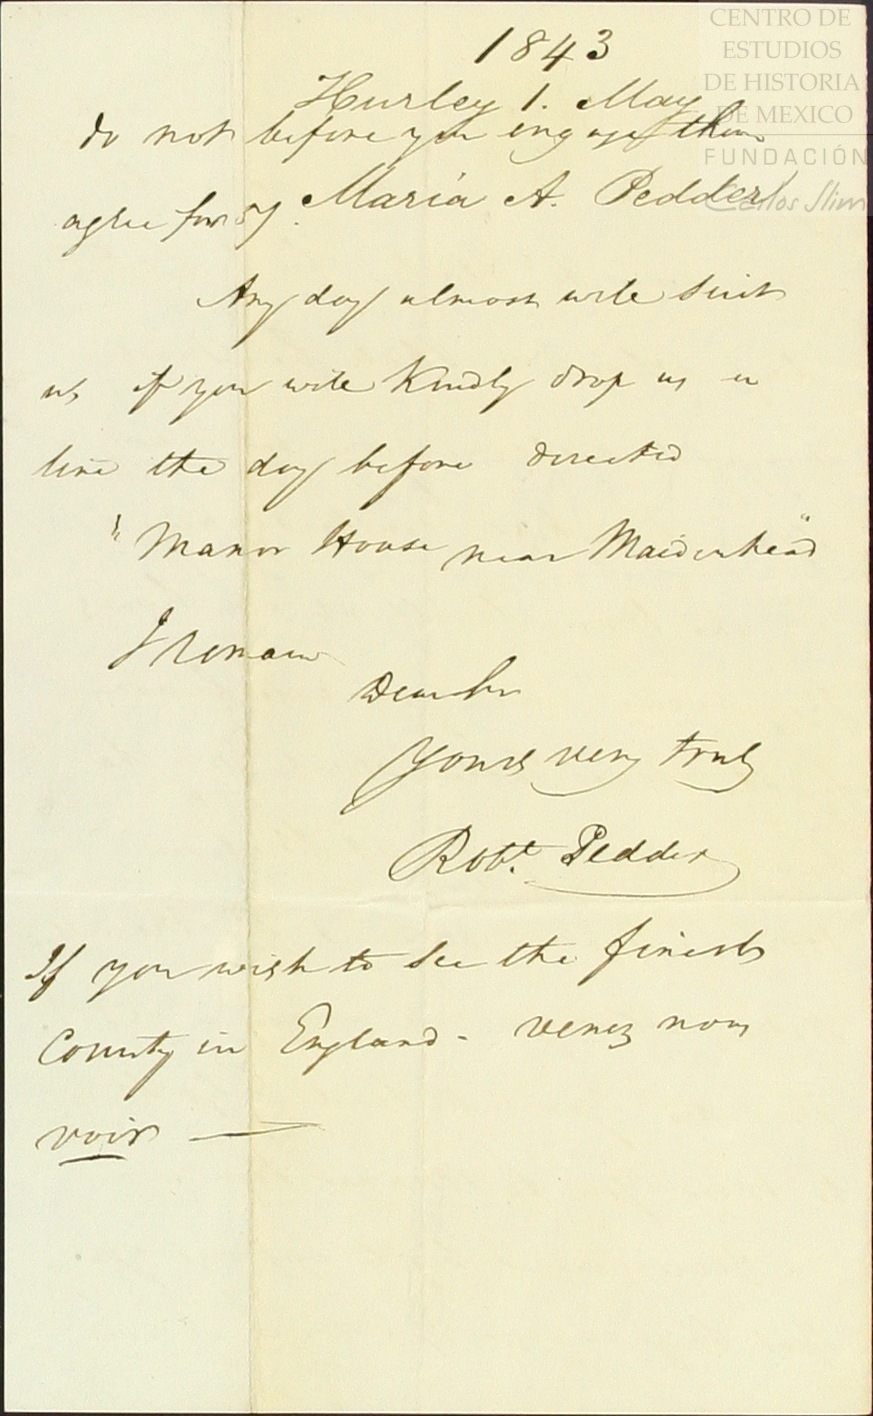 1843
Hurley 1. May
do not before you engage them
Maria A. Pedder
agree for 5/.
Any day almost will suit
us if you will kindly drop us a
line the day before directed
"Manor House near Maidenhead"
I remain
Dear Sir
Yours very truly
Robt. Pedder
If you wish to see the finest
County in England - venez nous
voir —
CENTRO DE
ESTUDIOS
DE HISTORIA
DE MEXICO
FUNDACIÓN
Carlos Slim